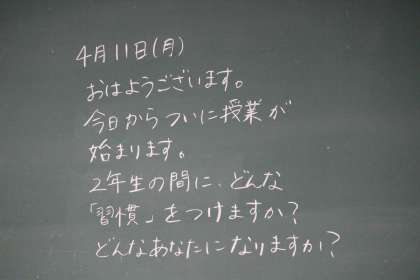 4月11日(月)
おはようございます。
今日からついに授業が
始まります。
2年生の間に、どんな
「習慣」をつけますか?
どんなあなたになりますか?